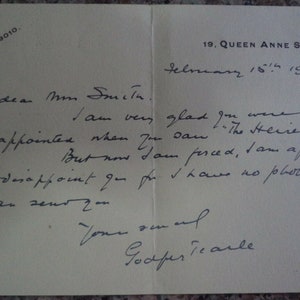 3010.
19, QUEEN ANNE S
February 15th 19
dear Mrs Smith.
I am very glad you were
appointed when you saw "The Heire
But now I am forced, I am a
disappoint you for I have no pho
an send you
Yours sincerely
Godfrey Tearle